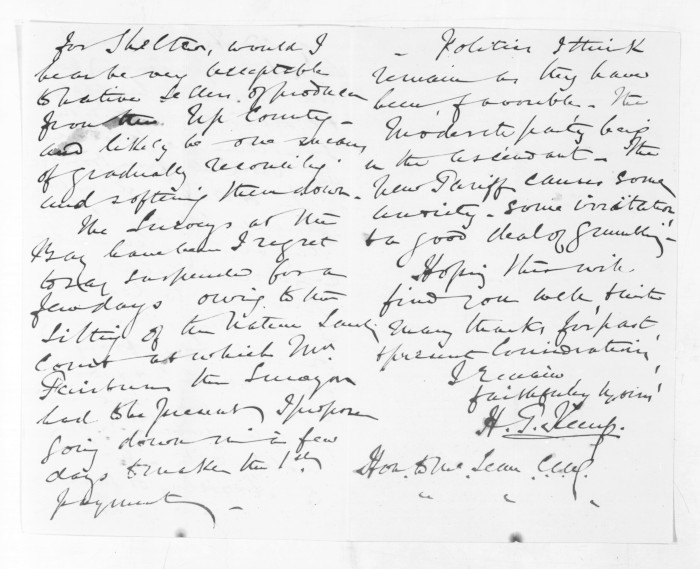 for Shelter, would I
hear be very acceptable
to Native Sellers of produce
from the Up County -
and likely be one means
of gradually reconciling
and softening them down -
The Surveys at the
Bay have been I regret
to say suspended for a
few days owing to the
Sitting of the Native Land
Court at which Mr
Fairburn the Surveyor
had to be present, I propose
going down in a few
days to make the 1st
payment -
- Politics I think
remain as they have
been, favorable - The
Moderate party being
in the ascendant - The
New Tariff causes some
anxiety - some irritation
& a good deal of grumbling -
Hoping this will
find you well, & with
many thanks for past,
& present Consideration,
I remain
faithfully yours
H. T. Kemp.
Hon. D. McLean C.M.G.
" " "